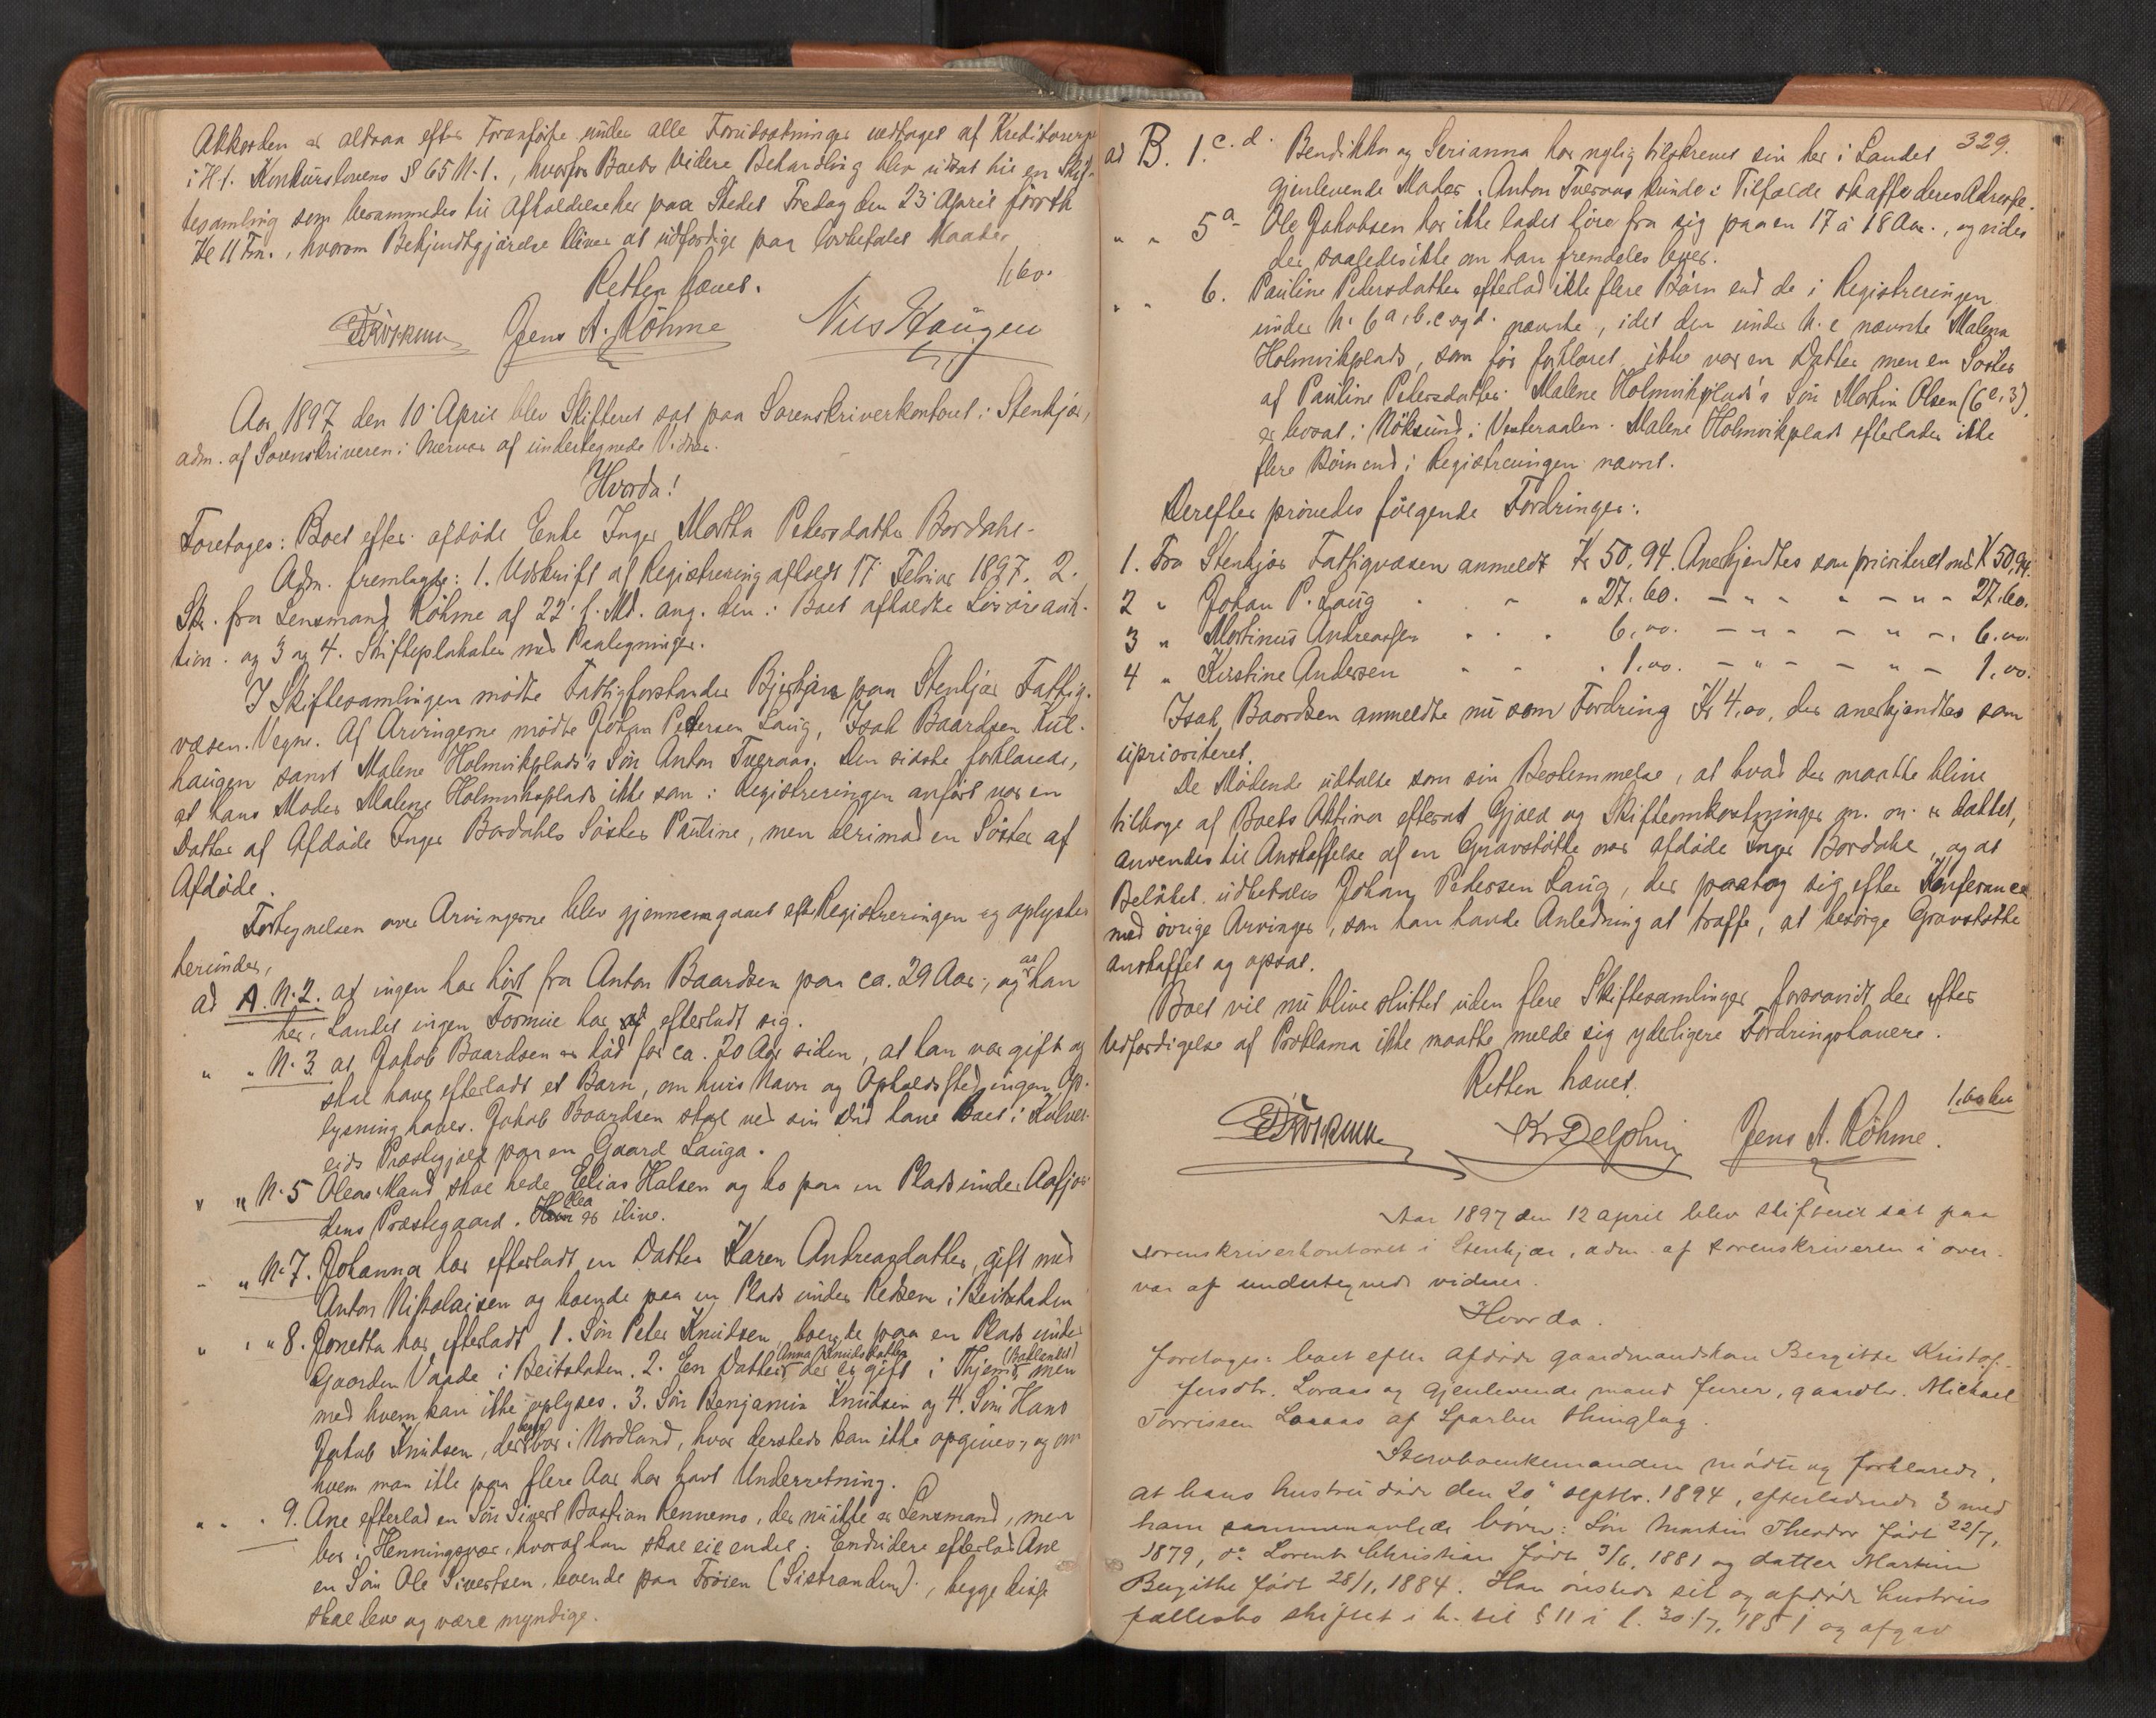 Akkorden er altsaa efter Foranførte under alle Forudsætninger vedtaget af Kreditorerne
i H. t. Konkurslovens § 65 N. 1., hvorfor Boets videre Behandling blev udsat til en Skif-
tesamling som berammedes til Afholdelse her paa Stedet Fredag den 23 April førsth
Kl 11 Fm., hvorom Bekjendtgjørelse bliver at udfærdige paa lovbefalet Maade.
Retten hævet.
1,60.
Jens A. Röhme Nils Haugen
Aar 1897 den 10 April blev Skifteret sat paa Sorenskriverkontoret i Stenkjær,
adm. af Sorenskriveren i Overvær af undertegnede Vidner.
Hvorda!
Foretages: Boet efter afdøde Enke Inger Martha Pedersdatter Bordahl-
Adm. fremlagde: 1. Udskrift af Registrering afholdt 17 Februar 1897. 2.
Skr. fra Lensmand Röhme af 22 f. Md. ang. den i Boet afholdte Løsøreauk-
tion. og 3 og 4. Skifteplakater med Paategninger.
I Skiftesamlingen mødte Fattigforstander Bjerkan paa Stenkjær Fattig-
væsen. Vegne. Af Arvingerne mødte Johan Petersen Laug, Isak Baardsen Kul-
haugen samt Malene Holmvikplads's Søn Anton Tveraas. Den sidste forklarede,
at hans Moder Malene Holmviksplads ikke som i Registreringen anført var en
Datter af Afdøde Inger Bordahls Søster Pauline, men derimod en Søster af
Afdøde.
Fortegnelsen over Arvingerne blev gjennemgaaet efter Registreringen og oplystes
herunder,
ad A. N. 2. at ingen har hørt fra Anton Baardsen paa ca. 29 Aar, og at han
her i Landet ingen Formue har efterladt sig.
" " N. 3 at Jakob Baardsen er død for ca. 20 Aar siden, at han var gift og
skal have efterladt et Barn, om hvis Navn og Opholdssted ingen Op-
lysning haves. Jakob Baardsen skal ved sin Død have boet i Kolver-
eids Præstegjæld paa en Gaard Lauga.
" " N. 5 Oleas Mand skal hede Elias Halsen og bo paa en Plads under Aafjor
dens Præstegaard. Olea er ilive.
- " N. 7. Johanna har efterladt en Datter Karen Andreasdatter, gift med
Anton Nikolaisen og boende paa en Plads under Redsem i Beitstaden
" " " 8. Jonetta har efterladt 1. Søn Peter Knudsen, boende paa en Plads under
Gaarden Vaade i Beitstaden. 2. En Datter Anna Knudsdatter der er gift i Thjemø (Bakkelandet) men
med hvem kan ikke oplyses. 3. Søn Benjamin Knudsen og 4. Søn Hans
Jakob Knudsen, der begge bor i Nordland, hvor dersteds kan ikke opgives, og om
hvem man ikke paa flere Aar har havt Underretning.
" " " 9. Ane efterlod en Søn Sivert Bastian Rennemo, der nu ikke er Lensmand, men
bor i Henningsvær, hvoraf han skal eie endel. Endvidere efterlod Ane
en Søn Ole Sivertsen, boende paa Frøien (Sistranden), begge disse
skal leve og være myndige.
329.
ad B. 1. c. d. Bendikka og Serianna har nylig tilskrevet sin her i Landet
gjenlevende Moder. Anton Tveraas kunde i Tilfælde skaffe deres Adresse.
" " 5 a- Ole Jakobsen har ikke ladet høre fra sig paa en 17 à 18 Aar., og vides
der saaledes ikke om han fremdeles lever.
" " 6. Pauline Pedersdatter efterlod ikke flere Børn end de i Registreringen
under N. 6 a, b, c og d. nævnte, idet den under N. e nævnte Malena
Holmvikplads, som før forklaret ikke var en Datter men en Søster
af Pauline Pedersdatter. Malene Holmvikplads's Søn Martin Olsen (6 e, 3).
er bosat i Nöksund i Vesteraalen. Malene Holmvikplads efterlader ikke
flere Børn end i Registreringen nævnt.
Derefter prøvedes følgende Fordringer:
1. Fra Stenkjær Fattigvæsen anmeldt Kr 50,94. Anerkjendtes som prioriteret med K 50,94.
2 " Johan P. Laug " " " 27.60. - " - " - " - 27.60.
3 " Martinus Andreassen " " " 6,00. - " - - " -. 6.00.
4 " Kirstine Andersen " " " 1,00. - " - - " - 1,00.
Isak Baardsen anmeldte nu som Fordring Kr 4,00, der anerkjendtes som
uprioriteret.
De Mødende udtalte som sin Bestemmelse, at hvad der maatte blive
tilbage af Boets Aktiva efterat Gjæld og Skifteomkostninger m. m. er dækket,
anvendes til Anskaffelse af en Gravstøtte over afdøde Inger Bordahl, og at
Beløbet udbetales Johan Pedersen Laug, der paatog sig efter Konferance
med øvrige Arvinger, som han havde Anledning at træffe, at besørge Gravstøtte
anskaffet og opsat.
Boet vil nu blive sluttet uden flere Skiftesamlinger forsaavidt der efter
Udfærdigelse af Proklama ikke maatte melde sig yderligere Fordringshavere.
Retten hævet.
Kr Delphin Jens A. Röhme.
Aar 1897 den 12 april blev skifteret sat paa
sorenskriverkontoret i Stenkjær, adm. af sorenskriveren i over-
vær af undertegnede vidner.
Hvorda.
Foretages: boet efter afdøde gaardmandskone Bergitte Kristof-
fersdtr. Loraas og gjenlevende mand furer, gaardbr. Michael
Torrissen Loraas af Sparbu thinglag.
Stervboenkemanden mødte og forklarede,
at hans hustru døde den 20 septbr. 1894, efterladende 3 med
ham sammenavlede børn: Søn Martin Theodor født 22/7,
1879, do Lorents Christian født 3/6, 1881 og datter Martine
Bergithe født 28/1, 1884. Han ønskede sit og afdøde hustrus
fællesbo skiftet i h. til § 11 i l. 30/7, 1851 og afgav